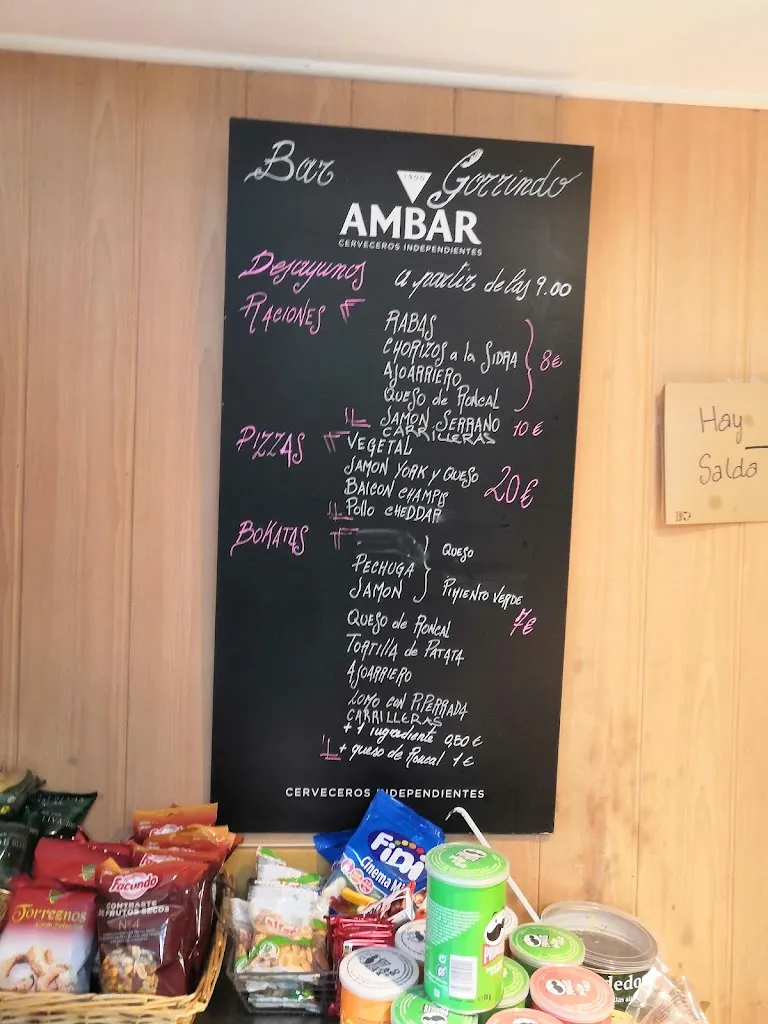 Bar Gorrindo
1900
AMBAR
CERVECEROS INDEPENDIENTES
Desayunos a partir de las 9.00
RACIONES
RABAS
CHORIZOS a la SIDRA 8€
AJOARRIERO
QUESO de RONCAL
JAMON SERRANO 10€
CARRILLERAS
PIZZAS VEGETAL
JAMON YORK y QUESO 20€
BAICON CHAMPIS
Pollo CHEDDAR
BOKATAS
QUESO
PECHUGA
JAMON PIMIENTO VERDE
QUESO de RONCAL 7€
TORTILLA de PATATA
AJOARRIERO
LOMO CON PIPERRADA
CARRILLERAS
+ 1 ingrediente 0,50€
+ queso de Roncal 1€
CERVECEROS INDEPENDIENTES
Hay
Salda
Torreznos
Facundo
CONTRASTE
DE FRUTOS SECOS
Nº4
FiDi
Cinema Mi